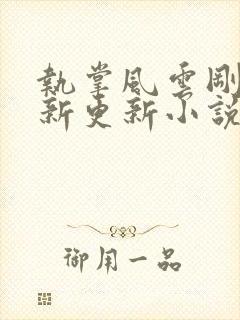 執掌風雲剛
新更新小說
御用一品